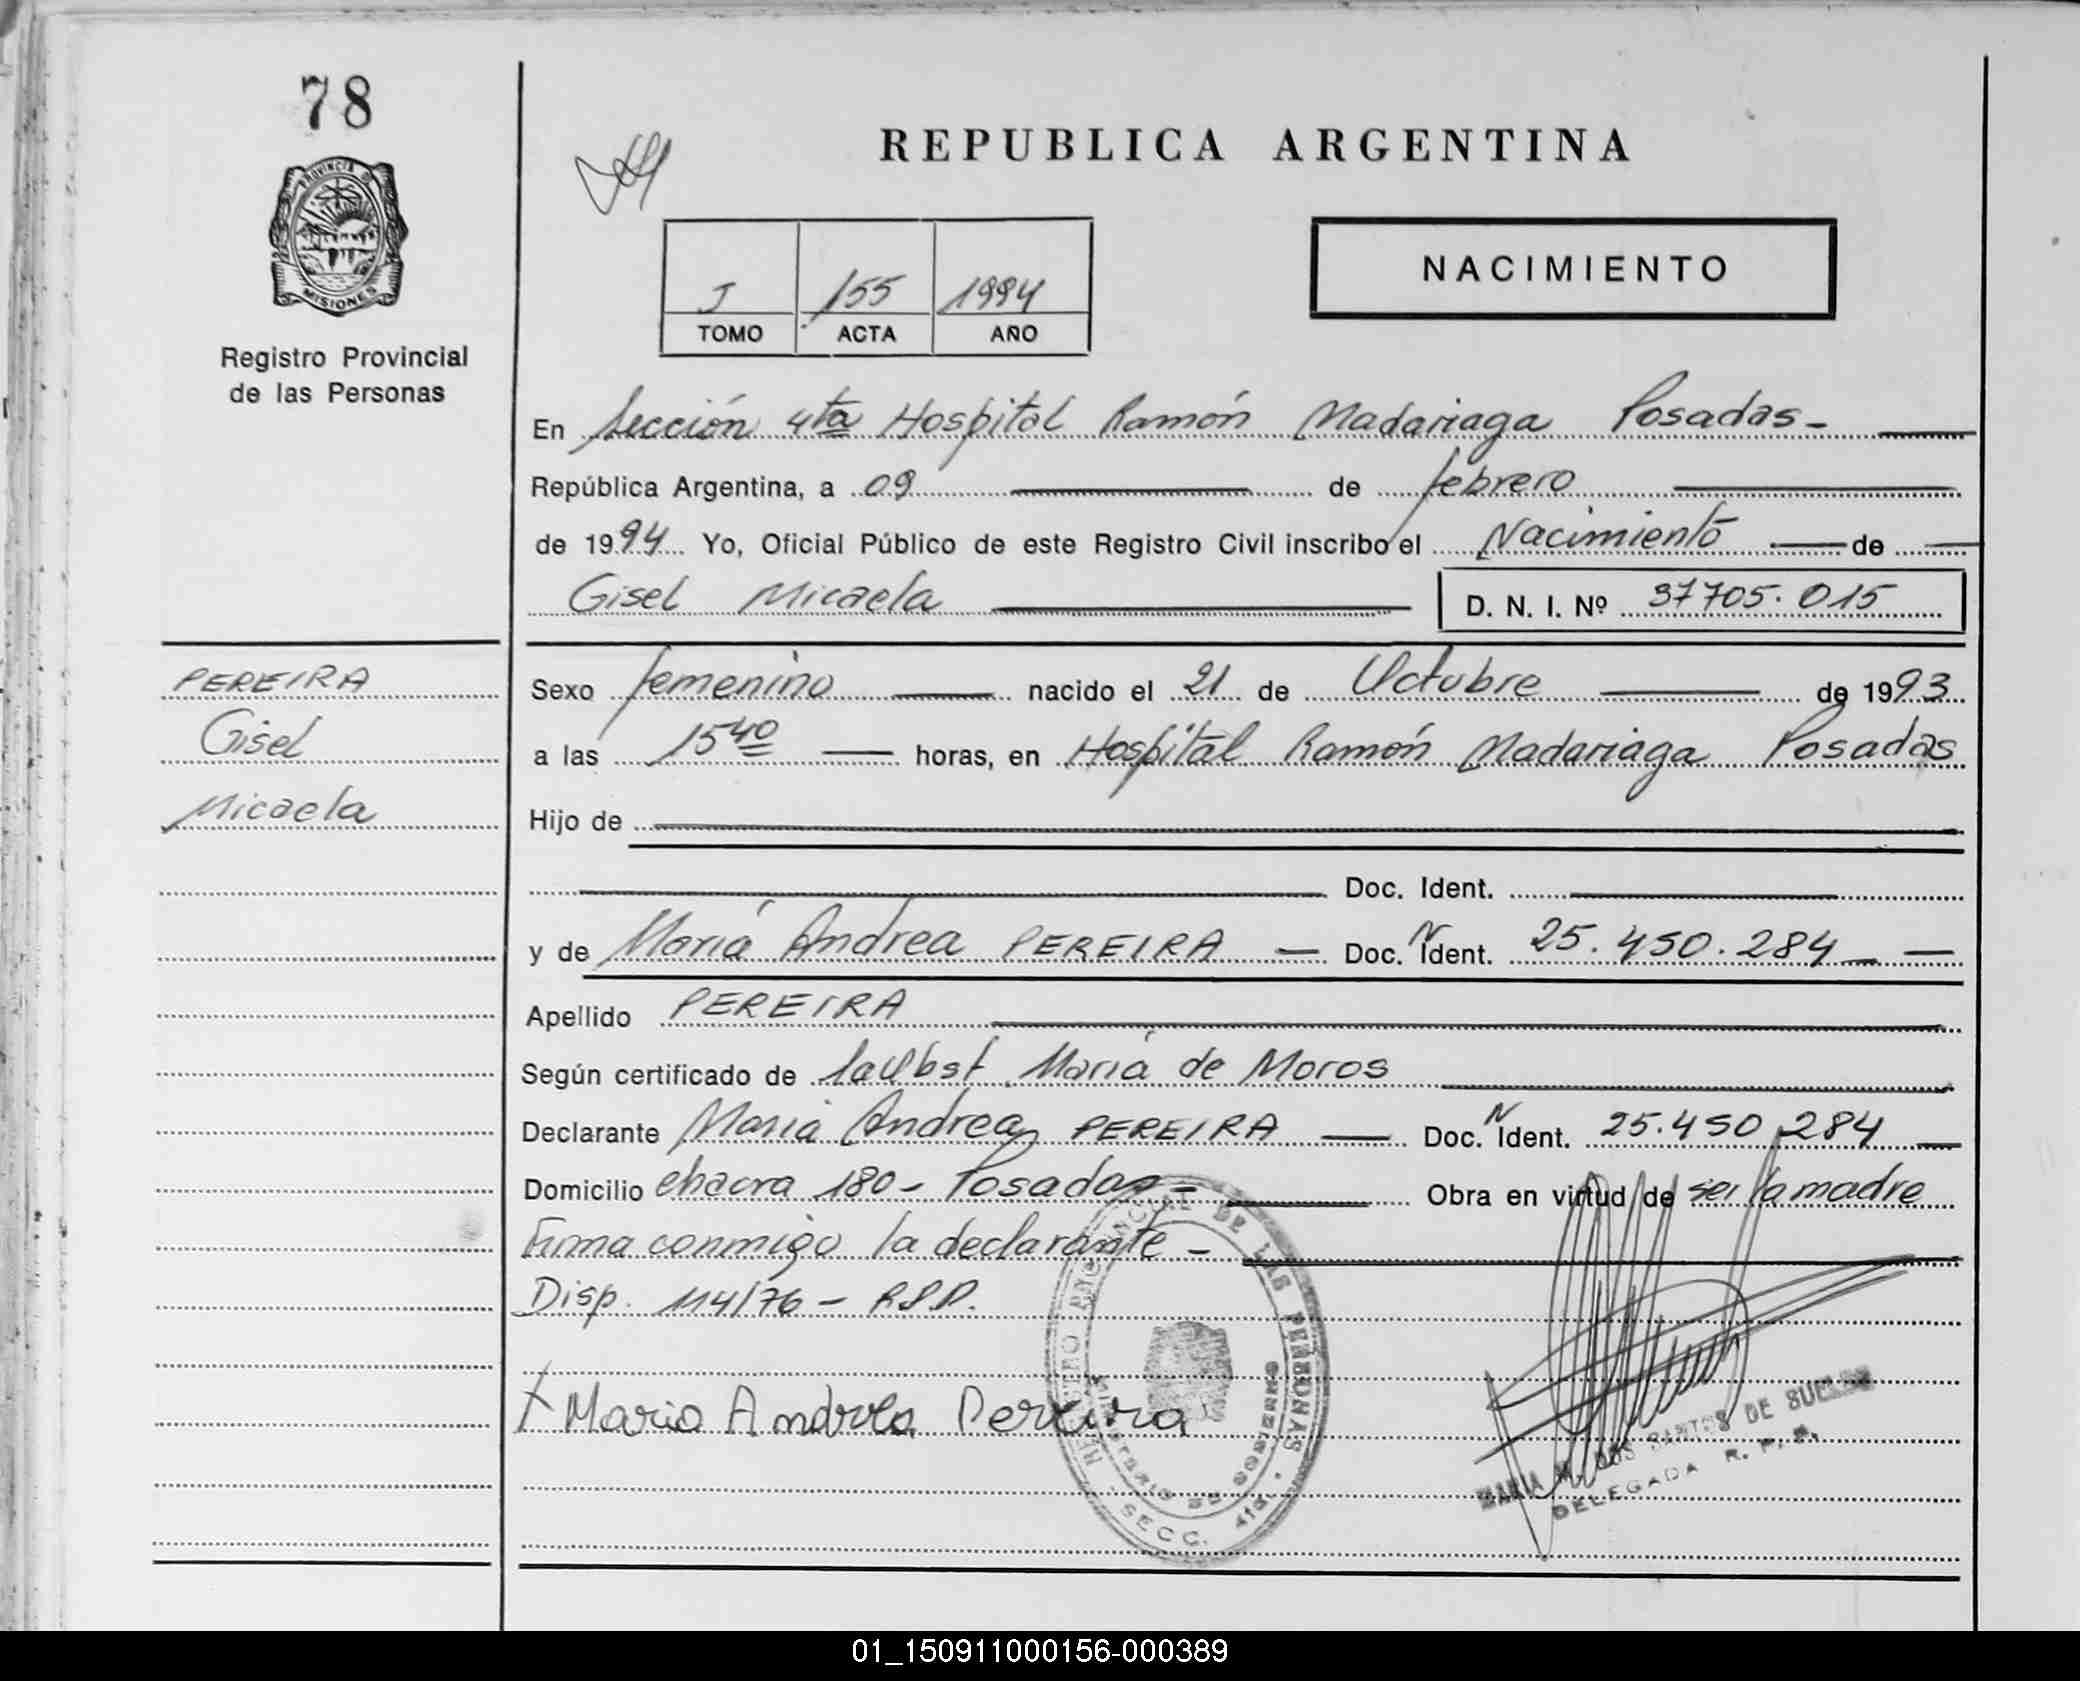 78
PROVINCIA DE
MISIONES
Registro Provincial
de las Personas
PEREIRA
Gisel
Micaela
REPUBLICA ARGENTINA
J 155 1994
TOMO ACTA AÑO
NACIMIENTO
En Sección 4ta Hospital Ramón Madariaga Posadas-
República Argentina, a 09 de febrero
de 1994 Yo, Oficial Público de este Registro Civil inscribo el Nacimiento de
Gisel Micaela D. N. I. Nº 37705.015
Sexo femenino nacido el 21 de Octubre de 1993
a las 15 40 horas, en Hospital Ramón Madariaga Posadas
Hijo de
Doc. Ident.
y de María Andrea PEREIRA — Doc. N Ident. 25.450.284
Apellido PEREIRA
Según certificado de la Obst. María de Moros
Declarante María Andrea PEREIRA — Doc. N Ident. 25.450.284
Domicilio chacra 180- Posadas- Obra en virtud de ser la madre
Firma conmigo la declarante-
Disp. 114/76 - R.P.P.
Maria Andrea Pereira
REGISTRO PROVINCIAL DE LAS PERSONAS
MINISTERIO DE GOBIERNO
SECC. 4ta.
MARIA M. DOS SANTOS DE
DELEGADA R. P. P.
01_150911000156-000389